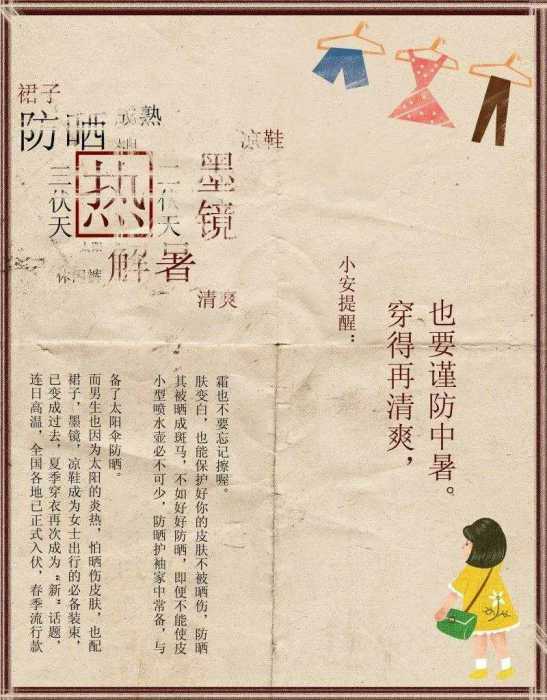 裙子
成熟
防晒
凉鞋
三伏天
热
墨镜
解暑
清爽
小安提醒：
穿得再清爽，
也要谨防中暑。
连日高温，全国各地已正式入伏，春季流行款
已变成过去，夏季穿衣再次成为“新”话题，
裙子，墨镜，凉鞋成为女士出行的必备装束，
而男生也因为太阳的炎热，怕晒伤皮肤，也配
备了太阳伞防晒。
小型喷水壶必不可少，防晒护袖家中常备，与
其被晒成斑马，不如好好防晒，即便不能使皮
肤变白，也能保护好你的皮肤不被晒伤，防晒
霜也不要忘记擦喔。